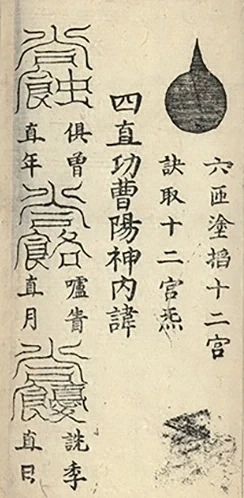 六匝塗掐十二宮
訣取十二宮炁
四直功曹陽神內諱
俱曾
直年
嚧
直月
詵李
直日